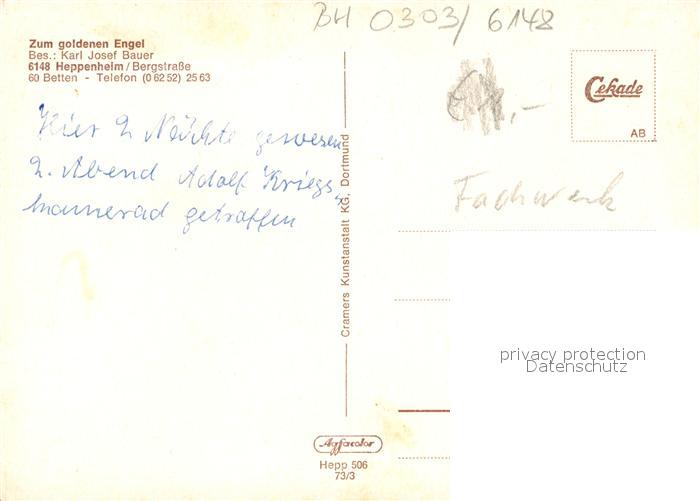 BH 0303/6148
Zum goldenen Engel
Bes.: Karl Josef Bauer
6148 Heppenheim/Bergstraße
60 Betten - Telefon (0 62 52) 25 63
Cekade
AB
Hier 2 Nächte gewesen
2. Abend Adolf Kriegs-
kamerad getroffen
Fachwerk
Cramers Kunstanstalt KG, Dortmund
privacy protection
Datenschutz
Agfacolor
Hepp 506
73/3